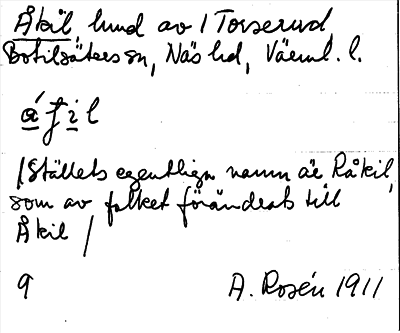 Åkil, lund av 1 Torserud,
Botilsäters sn, Näs hd, Värml. l.
á f i l
/Ställets egentliga namn är Råkil,
som av folket förändrats till
Åkil /
9 A. Rosén 1911